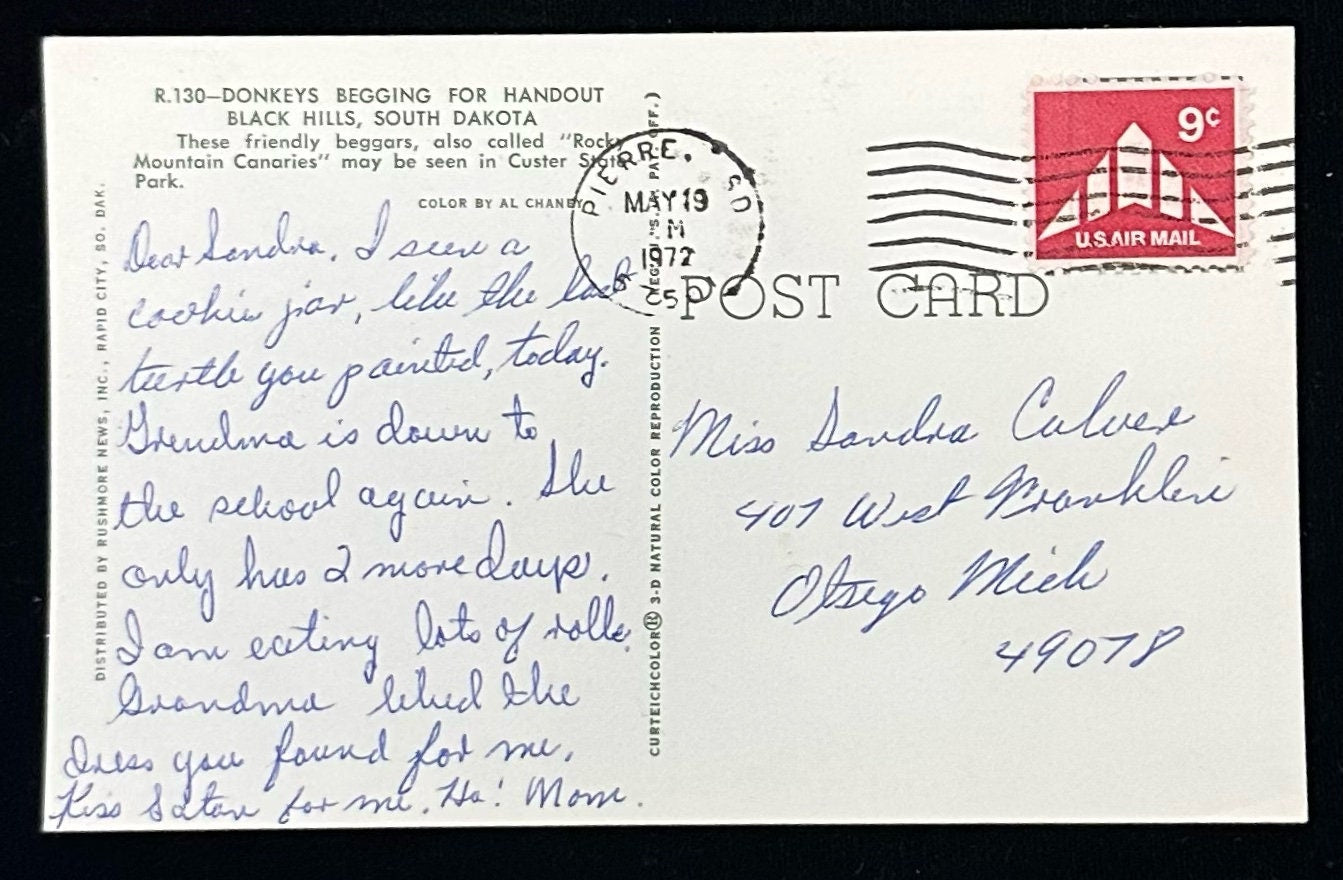 R.130—DONKEYS BEGGING FOR HANDOUT
BLACK HILLS, SOUTH DAKOTA
These friendly beggars, also called "Rocky
Mountain Canaries" may be seen in Custer State
Park.
COLOR BY AL CHANEY
DISTRIBUTED BY RUSHMORE NEWS, INC., RAPID CITY, SO. DAK.
Dear Sandra. I seen a
cookie jar, like the last
turtle you painted, today.
Grandma is down to
the school again. She
only has 2 more days.
I am eating lots of rolls.
Grandma liked the
dress you found for me.
Kiss Satan for me. Ha! Mom.
CURTEICHCOLOR® 3-D NATURAL COLOR REPRODUCTION U.S.A. PAT. OFF.)
PIERRE, SD
MAY 19
M
1972
9¢
U.S. AIR MAIL
POST CARD
Miss Sandra Culver
407 West Franklin
Otsego Mich
49078